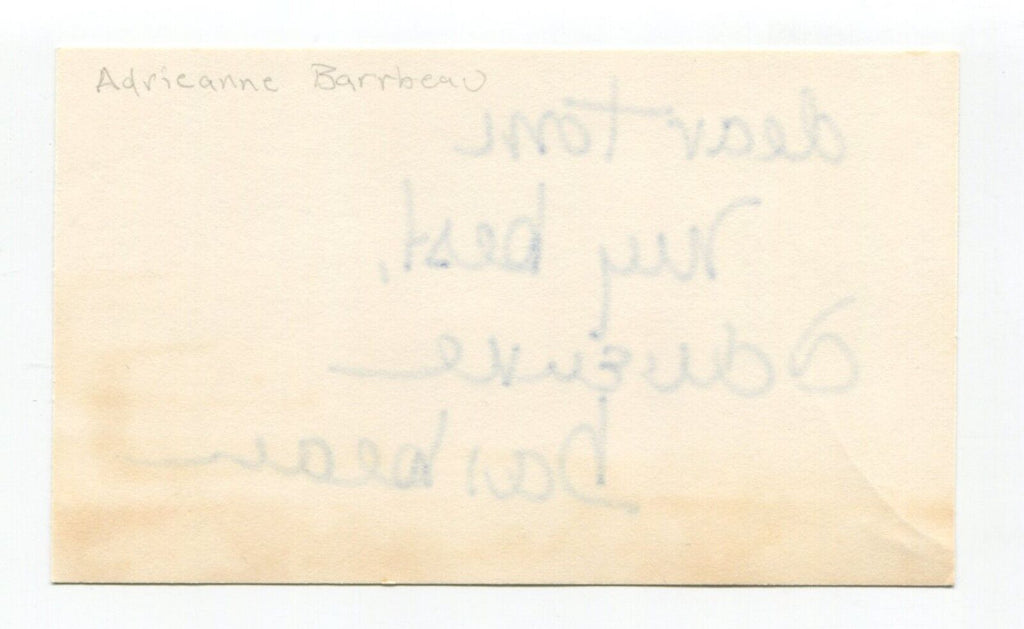 Adrieanne Barrbeau
dear Toni
My best,
Adrienne
Barbeau